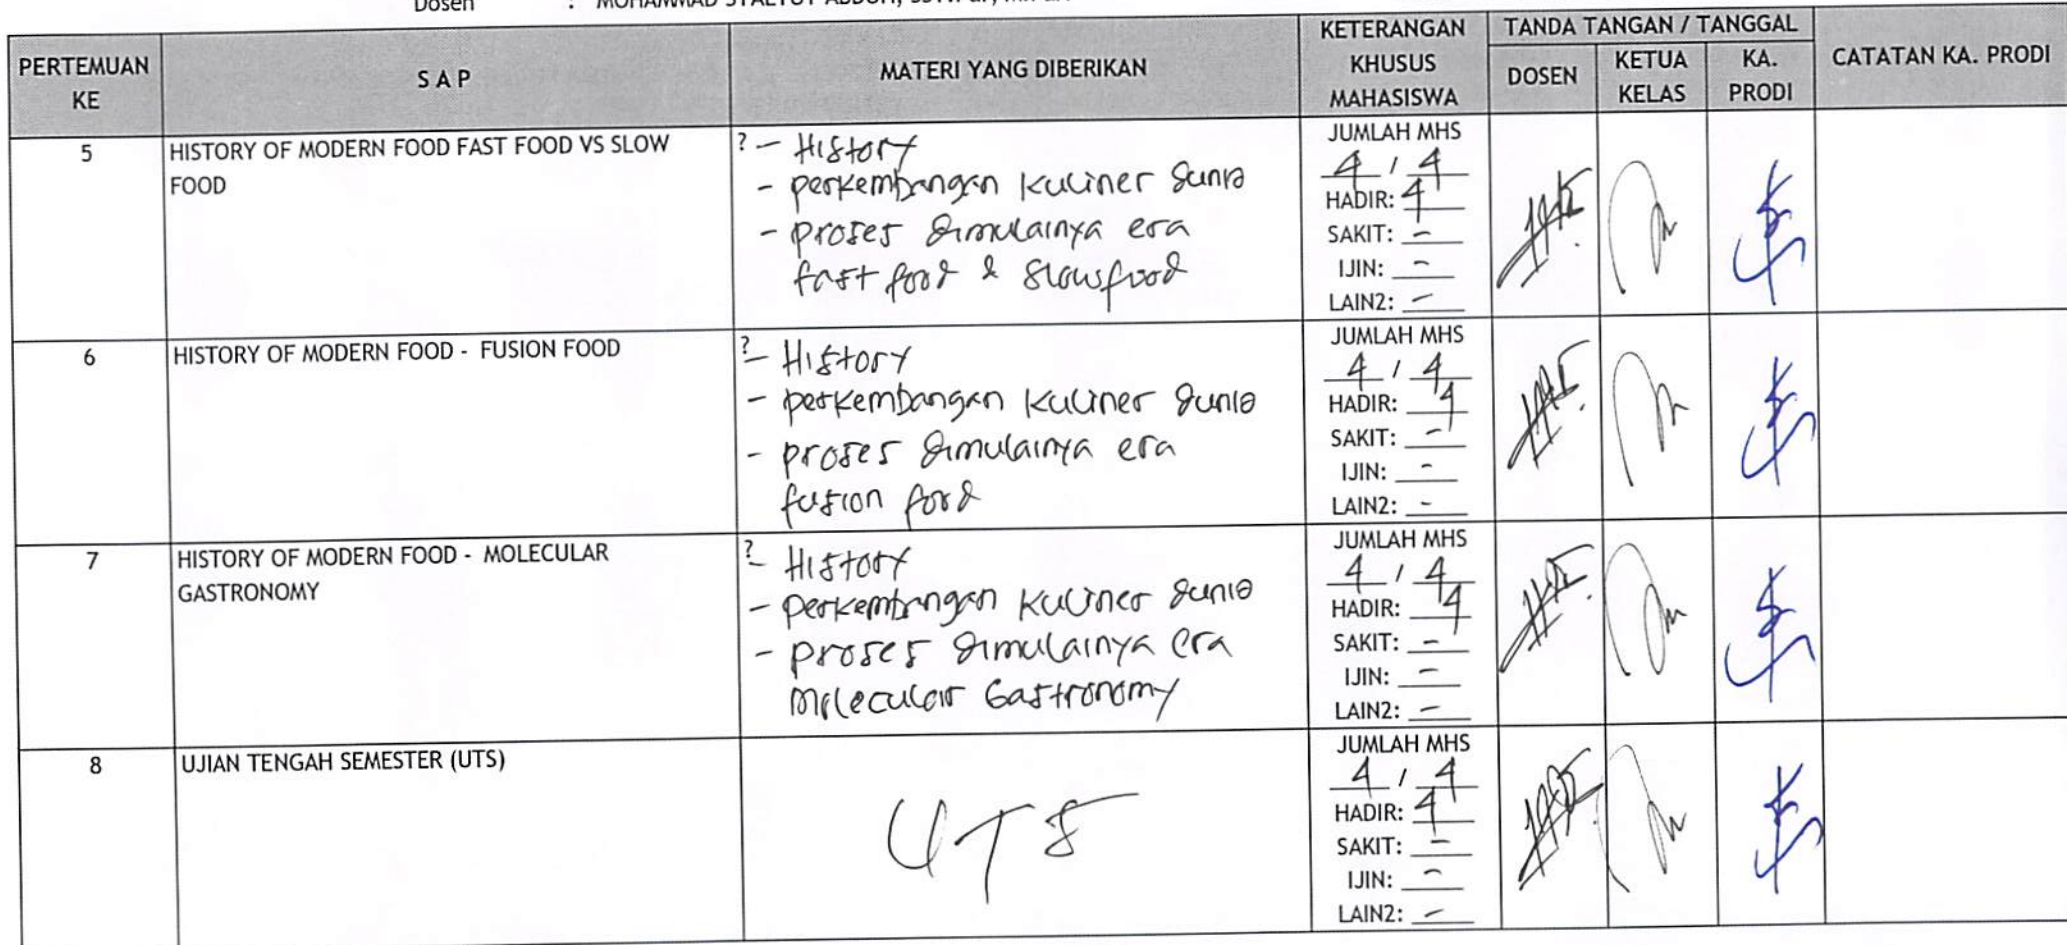 Dosen : MOHAMMAD
PERTEMUAN KE
S A P
MATERI YANG DIBERIKAN
KETERANGAN KHUSUS MAHASISWA
TANDA TANGAN / TANGGAL
DOSEN
KETUA KELAS
KA. PRODI
CATATAN KA. PRODI
5
HISTORY OF MODERN FOOD FAST FOOD VS SLOW
FOOD
? - History
- perkembangan kuliner dunia
- proses dimulainya era
fast food & slowfood
JUMLAH MHS
4 / 4
HADIR: 4
SAKIT: -
IJIN: -
LAIN2: -
6
HISTORY OF MODERN FOOD - FUSION FOOD
? - History
- perkembangan kuliner dunia
- proses dimulainya era
fusion food
JUMLAH MHS
4 / 4
HADIR: 4
SAKIT: -
IJIN: -
LAIN2: -
7
HISTORY OF MODERN FOOD - MOLECULAR
GASTRONOMY
? - History
- perkembangan kuliner dunia
- proses dimulainya era
Molecular Gastronomy
JUMLAH MHS
4 / 4
HADIR: 4
SAKIT: -
IJIN: -
LAIN2: -
8
UJIAN TENGAH SEMESTER (UTS)
UTS
JUMLAH MHS
4 / 4
HADIR: 4
SAKIT: -
IJIN: -
LAIN2: -